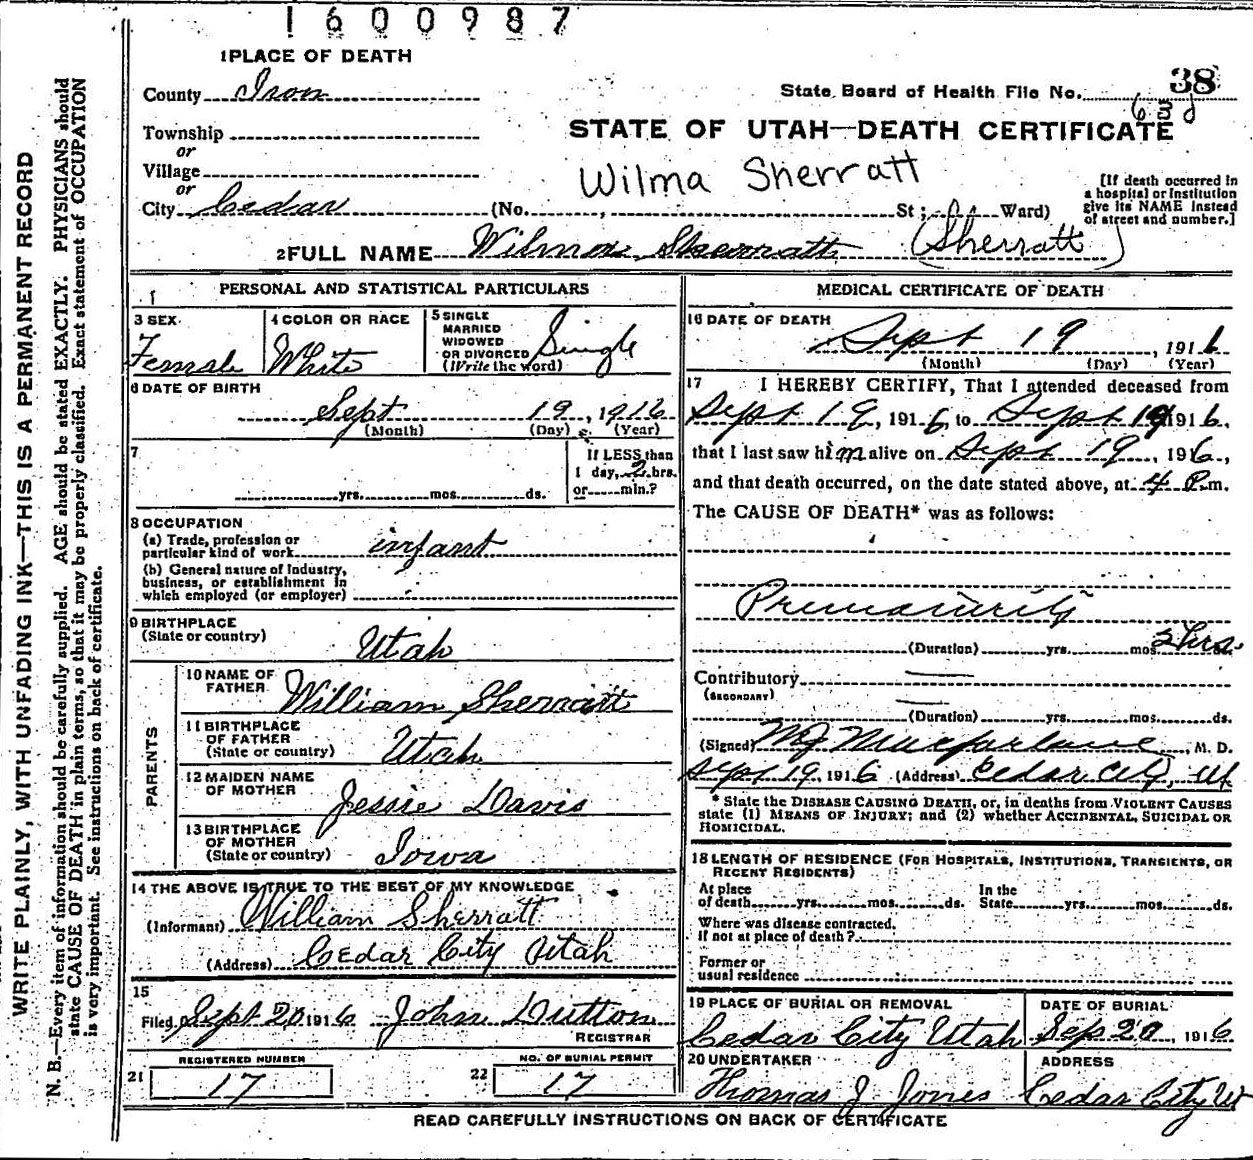 1600987
1 PLACE OF DEATH
County Iron
State Board of Health File No. 38
Township
or
STATE OF UTAH—DEATH CERTIFICATE
Village
or
Wilma Sherratt
City Cedar (No. , St; Ward)
[If death occurred in
a hospital or institution
give its NAME instead
of street and number.]
2 FULL NAME Wilma Sherratt (Sherratt)
PERSONAL AND STATISTICAL PARTICULARS
3 SEX
Female
4 COLOR OR RACE
White
5 SINGLE
MARRIED
WIDOWED
OR DIVORCED
(Write the word)
Single
6 DATE OF BIRTH
Sept 19, 1916
(Month) (Day) (Year)
7
yrs. mos. ds.
If LESS than
1 day, 2 hrs.
or min.?
8 OCCUPATION
(a) Trade, profession or
particular kind of work infant
(b) General nature of Industry,
business, or establishment in
which employed (or employer)
9 BIRTHPLACE
(State or country)
Utah
PARENTS
10 NAME OF
FATHER
William Sherratt
11 BIRTHPLACE
OF FATHER
(State or country)
Utah
12 MAIDEN NAME
OF MOTHER
Jessie Davis
13 BIRTHPLACE
OF MOTHER
(State or country)
Iowa
14 THE ABOVE IS TRUE TO THE BEST OF MY KNOWLEDGE
(Informant) William Sherratt
(Address) Cedar City Utah
15
Filed Sept 20 1916 John Dutton
REGISTRAR
REGISTERED NUMBER
21 17
NO. OF BURIAL PERMIT
22 17
MEDICAL CERTIFICATE OF DEATH
16 DATE OF DEATH
Sept 19, 1916
(Month) (Day) (Year)
17 I HEREBY CERTIFY, That I attended deceased from
Sept 19, 1916, to Sept 19 1916,
that I last saw him alive on Sept 19, 1916,
and that death occurred, on the date stated above, at 4 P.m.
The CAUSE OF DEATH* was as follows:
Prematurity
(Duration) yrs. mos. 2 hrs.
Contributory
(SECONDARY)
(Duration) yrs. mos. ds.
(Signed) MJ Macfarlane, M. D.
Sept 19, 1916 (Address) Cedar City, Ut
* State the DISEASE CAUSING DEATH, or, in deaths from VIOLENT CAUSES
state (1) MEANS OF INJURY; and (2) whether ACCIDENTAL, SUICIDAL OR
HOMICIDAL.
18 LENGTH OF RESIDENCE (FOR HOSPITALS, INSTITUTIONS, TRANSIENTS, OR
RECENT RESIDENTS)
At place
of death yrs. mos. ds.
In the
State yrs. mos. ds.
Where was disease contracted.
If not at place of death?
Former or
usual residence
19 PLACE OF BURIAL OR REMOVAL
Cedar City Utah
DATE OF BURIAL
Sep 20, 1916
20 UNDERTAKER
Thomas J Jones
ADDRESS
Cedar City Ut
READ CAREFULLY INSTRUCTIONS ON BACK OF CERTIFICATE
WRITE PLAINLY, WITH UNFADING INK—THIS IS A PERMANENT RECORD
N. B.—Every item of information should be carefully supplied. AGE should be stated EXACTLY. PHYSICIANS should
state CAUSE OF DEATH in plain terms, so that it may be properly classified. Exact statement of OCCUPATION
is very important. See instructions on back of certificate.